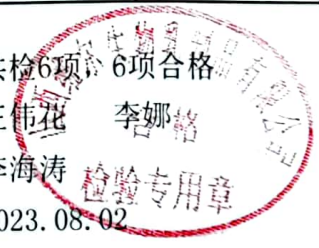 共检6项，6项合格
王伟花 李娜
李海涛
2023.08.02
合格
检验专用章